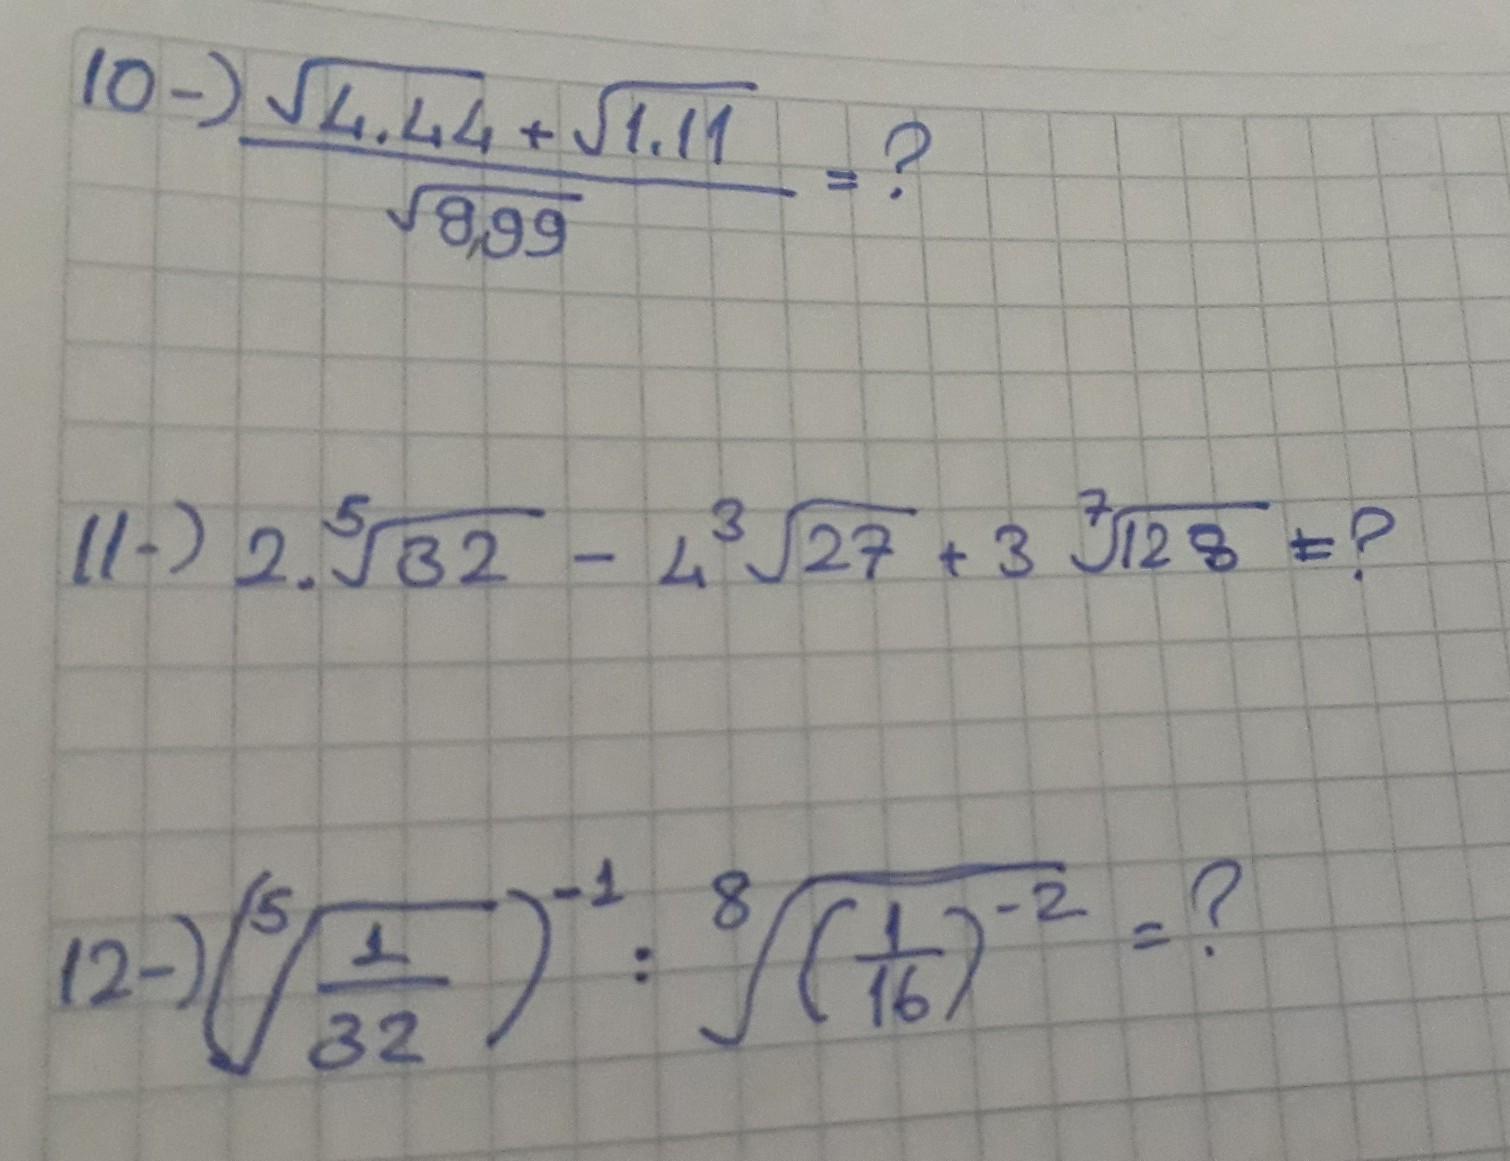 10-) (√4.44 + √1.11) / √8,99 = ?
11-) 2.⁵√32 - 4 ³√27 + 3 ⁷√128 = ?
12-) (⁵√(1/32))⁻¹ : ⁸√((1/16)⁻²) = ?